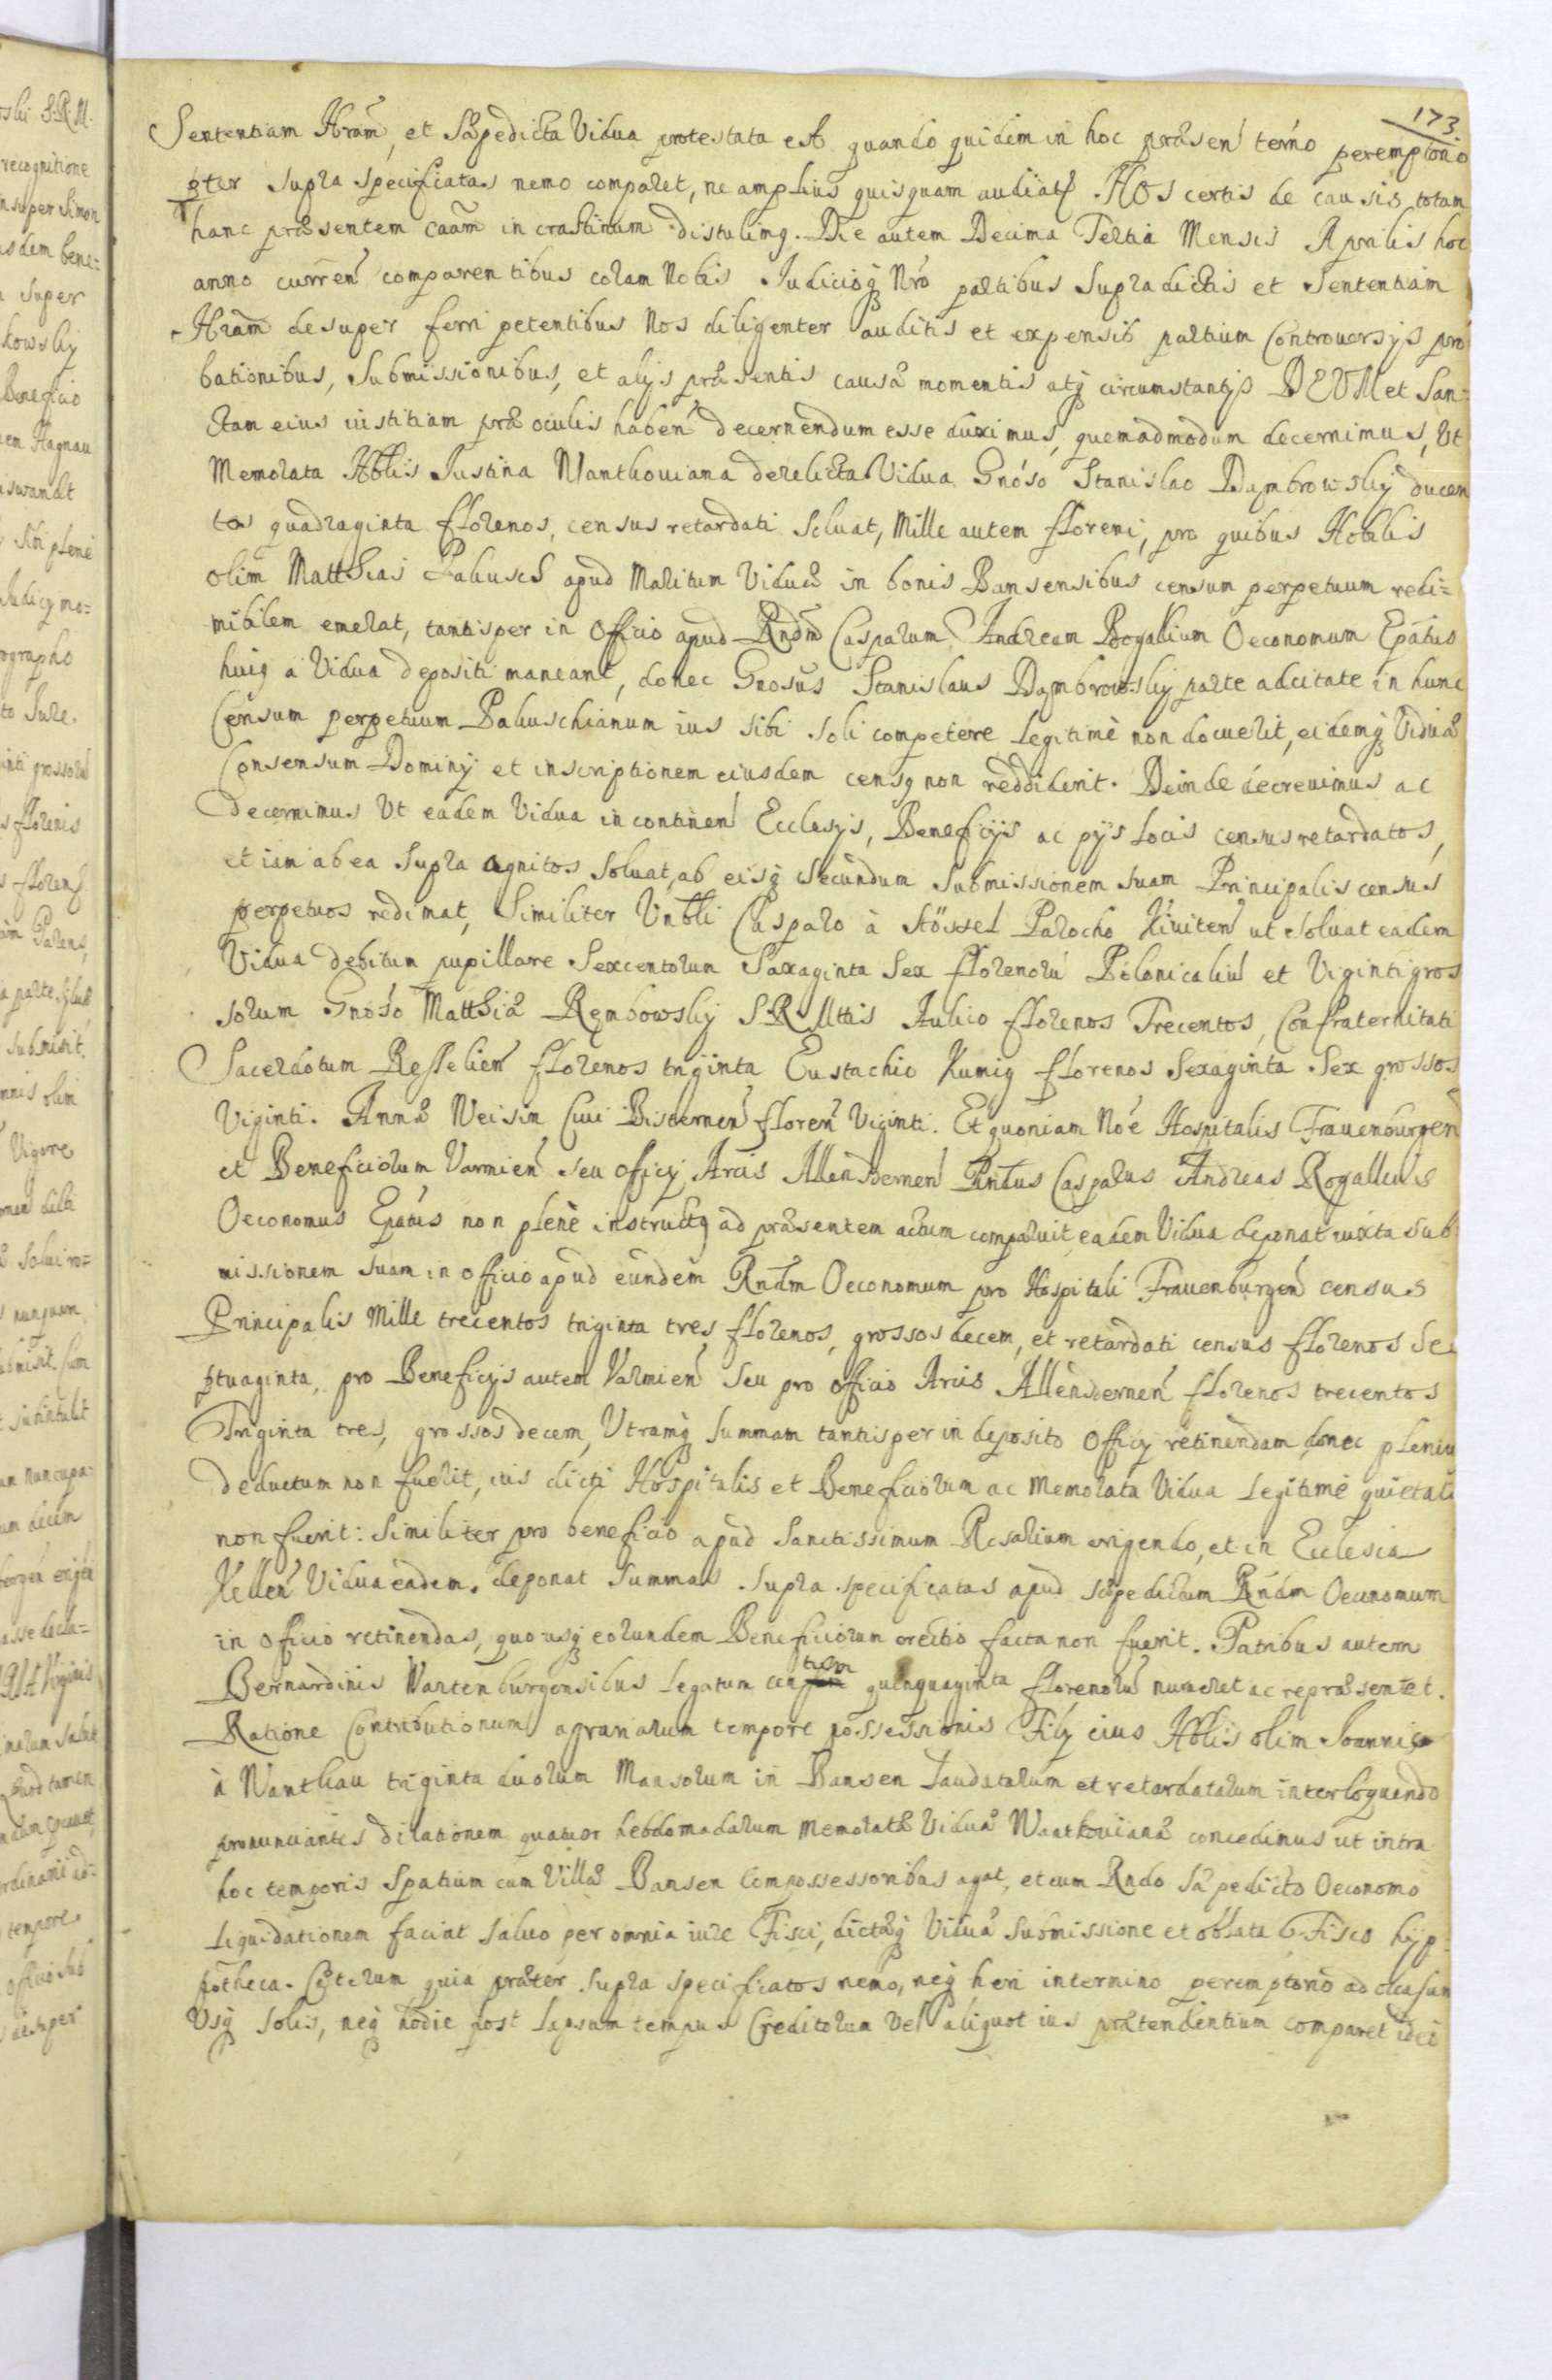 173.
Sententiam Nram, et Sæpedicta Vidua protestata est quando quidem in hoc præsen termo peremptorio
pter supra specificatas nemo comparet, ne amplius quisquam audiatr. NOs certis de causis totam
hanc præsentem caam in crastinum distulimq. Die autem Decima Tertia Mensis Aprilis hoc
anno curren comparentibus coram Nobis Judicioq Nro partibus supradictis et Sententiam
Nram desuper ferri petentibus Nos diligenter auditis et expensis partium Controversijs pro
bationibus, Submissionibus, et alijs præsentis causæ momentis atq circumstantijs DEUM et San=
ctam eius iustitiam præ oculis haben decernendum esse duximus, quemadmodum decernimus, Ut
Memorata Nblis Justina Wantkoviana derelicta Vidua Gnoso Stanislao Dąmbrowskÿ ducen
tos quadraginta florenos, census retardati soluat, Mille autem floreni, pro quibus Nobilis
olim Matthias Babusch apud Maritum Viduæ in bonis Bansensibus censum perpetuum redi=
mibilem emerat, tantisper in Officio apud Rndm Casparum Andream Rogallium Oeconomum Epatus
huiq a Vidua depositi maneant, donec Gnosus Stanislaus Dąmbrowskÿ parte adcitate in hunc
Censum perpetuum Babuschianum ius sibi soli competere legitimè non docuerit, eidemq Viduæ
Consensum Dominij et inscriptionem eiusdem censq non reddiderit. Deinde decrevimus ac
decernimus Ut eadem Vidua incontinen Ecclesijs, Beneficijs ac pijs locis census retardatos,
et iam ab ea supra agnitos soluat, ab eisq secundum submissionem suam Principalis census
perpetuos redimat, Similiter Vnbli Casparo à Stössel Parocho Kiviten ut soluat eadem
Vidua debitum pupillare Sexcentorum Saxaginta Sex florenoru Polonicaliu et Viginti gros
sorum Gnoso Matthiæ Rembowskÿ S R Mttis Aulico florenos Trecentos, Confraternitati
Sacerdotum Resselien florenos triginta Eustachio Kunig florenos Sexaginta Sex grossos
Viginti. Annæ Weisin Civi Bisternen floren Viginti. Et quoniam Noe Hospitalis Frauenburgen
et Beneficiorum Varmien seu officij Arcis Allensternen Rndus Casparus Andreas Rogallius
Oeconomus Epatus non plenè instructq ad præsentem actum comparuit, eadem Vidua deponat iuxta sub
missionem suam in officio apud eundem Rndm Oeconomum pro Hospitali Frauenburgen census
Principalis Mille trecentos triginta tres florenos, grossos decem, et retardati census florenos Se
ptuaginta, pro Beneficijs autem Varmien seu pro officio Arcis Allensternen florenos trecentos
Triginta tres, grossos decem, Utramq summam tantisper in deposito officij retinendam, donec pleniu
deductum non fuerit, ius dicti Hospitalis et Beneficiorum ac Memorata Vidua legitimè quietata
non fuerit: Similiter pro beneficio apud Sanctissimum Rosarium erigendo, et in Ecclesia
Kellen Vidua eadem deponat summas supra specificatas apud sæpedictum Rndm Oeconomum
in officio retinendas, quousq eorundem Beneficiorum erectio facta non fuerit. Patribus autem
Bernardinis Wartenburgensibus legatum centum quinquaginta florenoru numeret ac repræsentet.
Ratione Contributionum agrariarum tempore possessionis Filij eius Nblis olim Joannis
à Wantkau triginta duorum Mansorum in Bansen laudatarum et retardatarum interloquendo
pronunciantes dilationem quatuor hebdomadarum Memoratæ Viduæ Wantkovianæ concedimus ut intra
hoc temporis Spatium cum Villæ Bansen Compossessoribus agat, et cum Rndo sæpedicto Oeconomo
Liquidationem faciat saluo per omnia iure Fisci, dictæq Viduæ submissione et oblata Fisco hÿp=
potheca. Ceterum quia præter supra specificatos nemo, neq heri in termino peremptorio ad occasum
Usq solis, neq hodie post lapsum tempus Creditorum Vel aliquot ius prætendentium comparet ideo